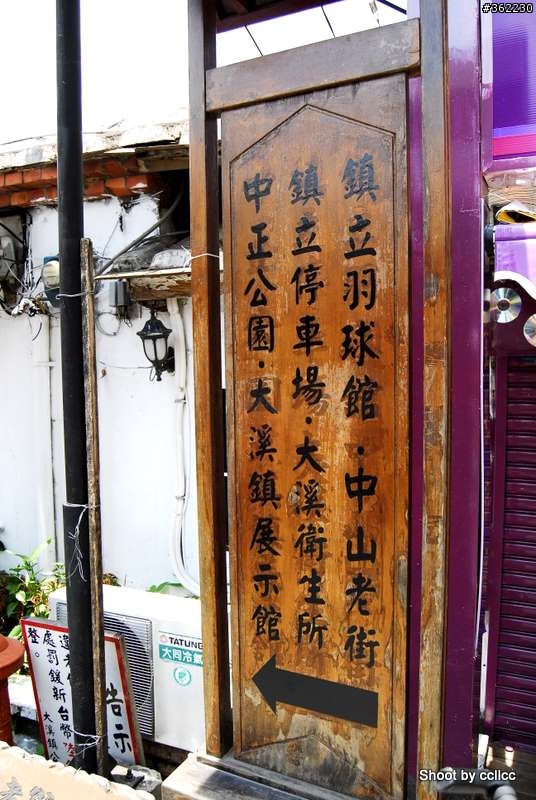 #362230
鎮立羽球館·中山老街
鎮立停車場·大溪衛生所
中正公園·大溪鎮展示館
TATUNG
大同冷氣
告示
處罰鍰新台幣陸
整。
大溪鎮公
Shoot by ccllcc